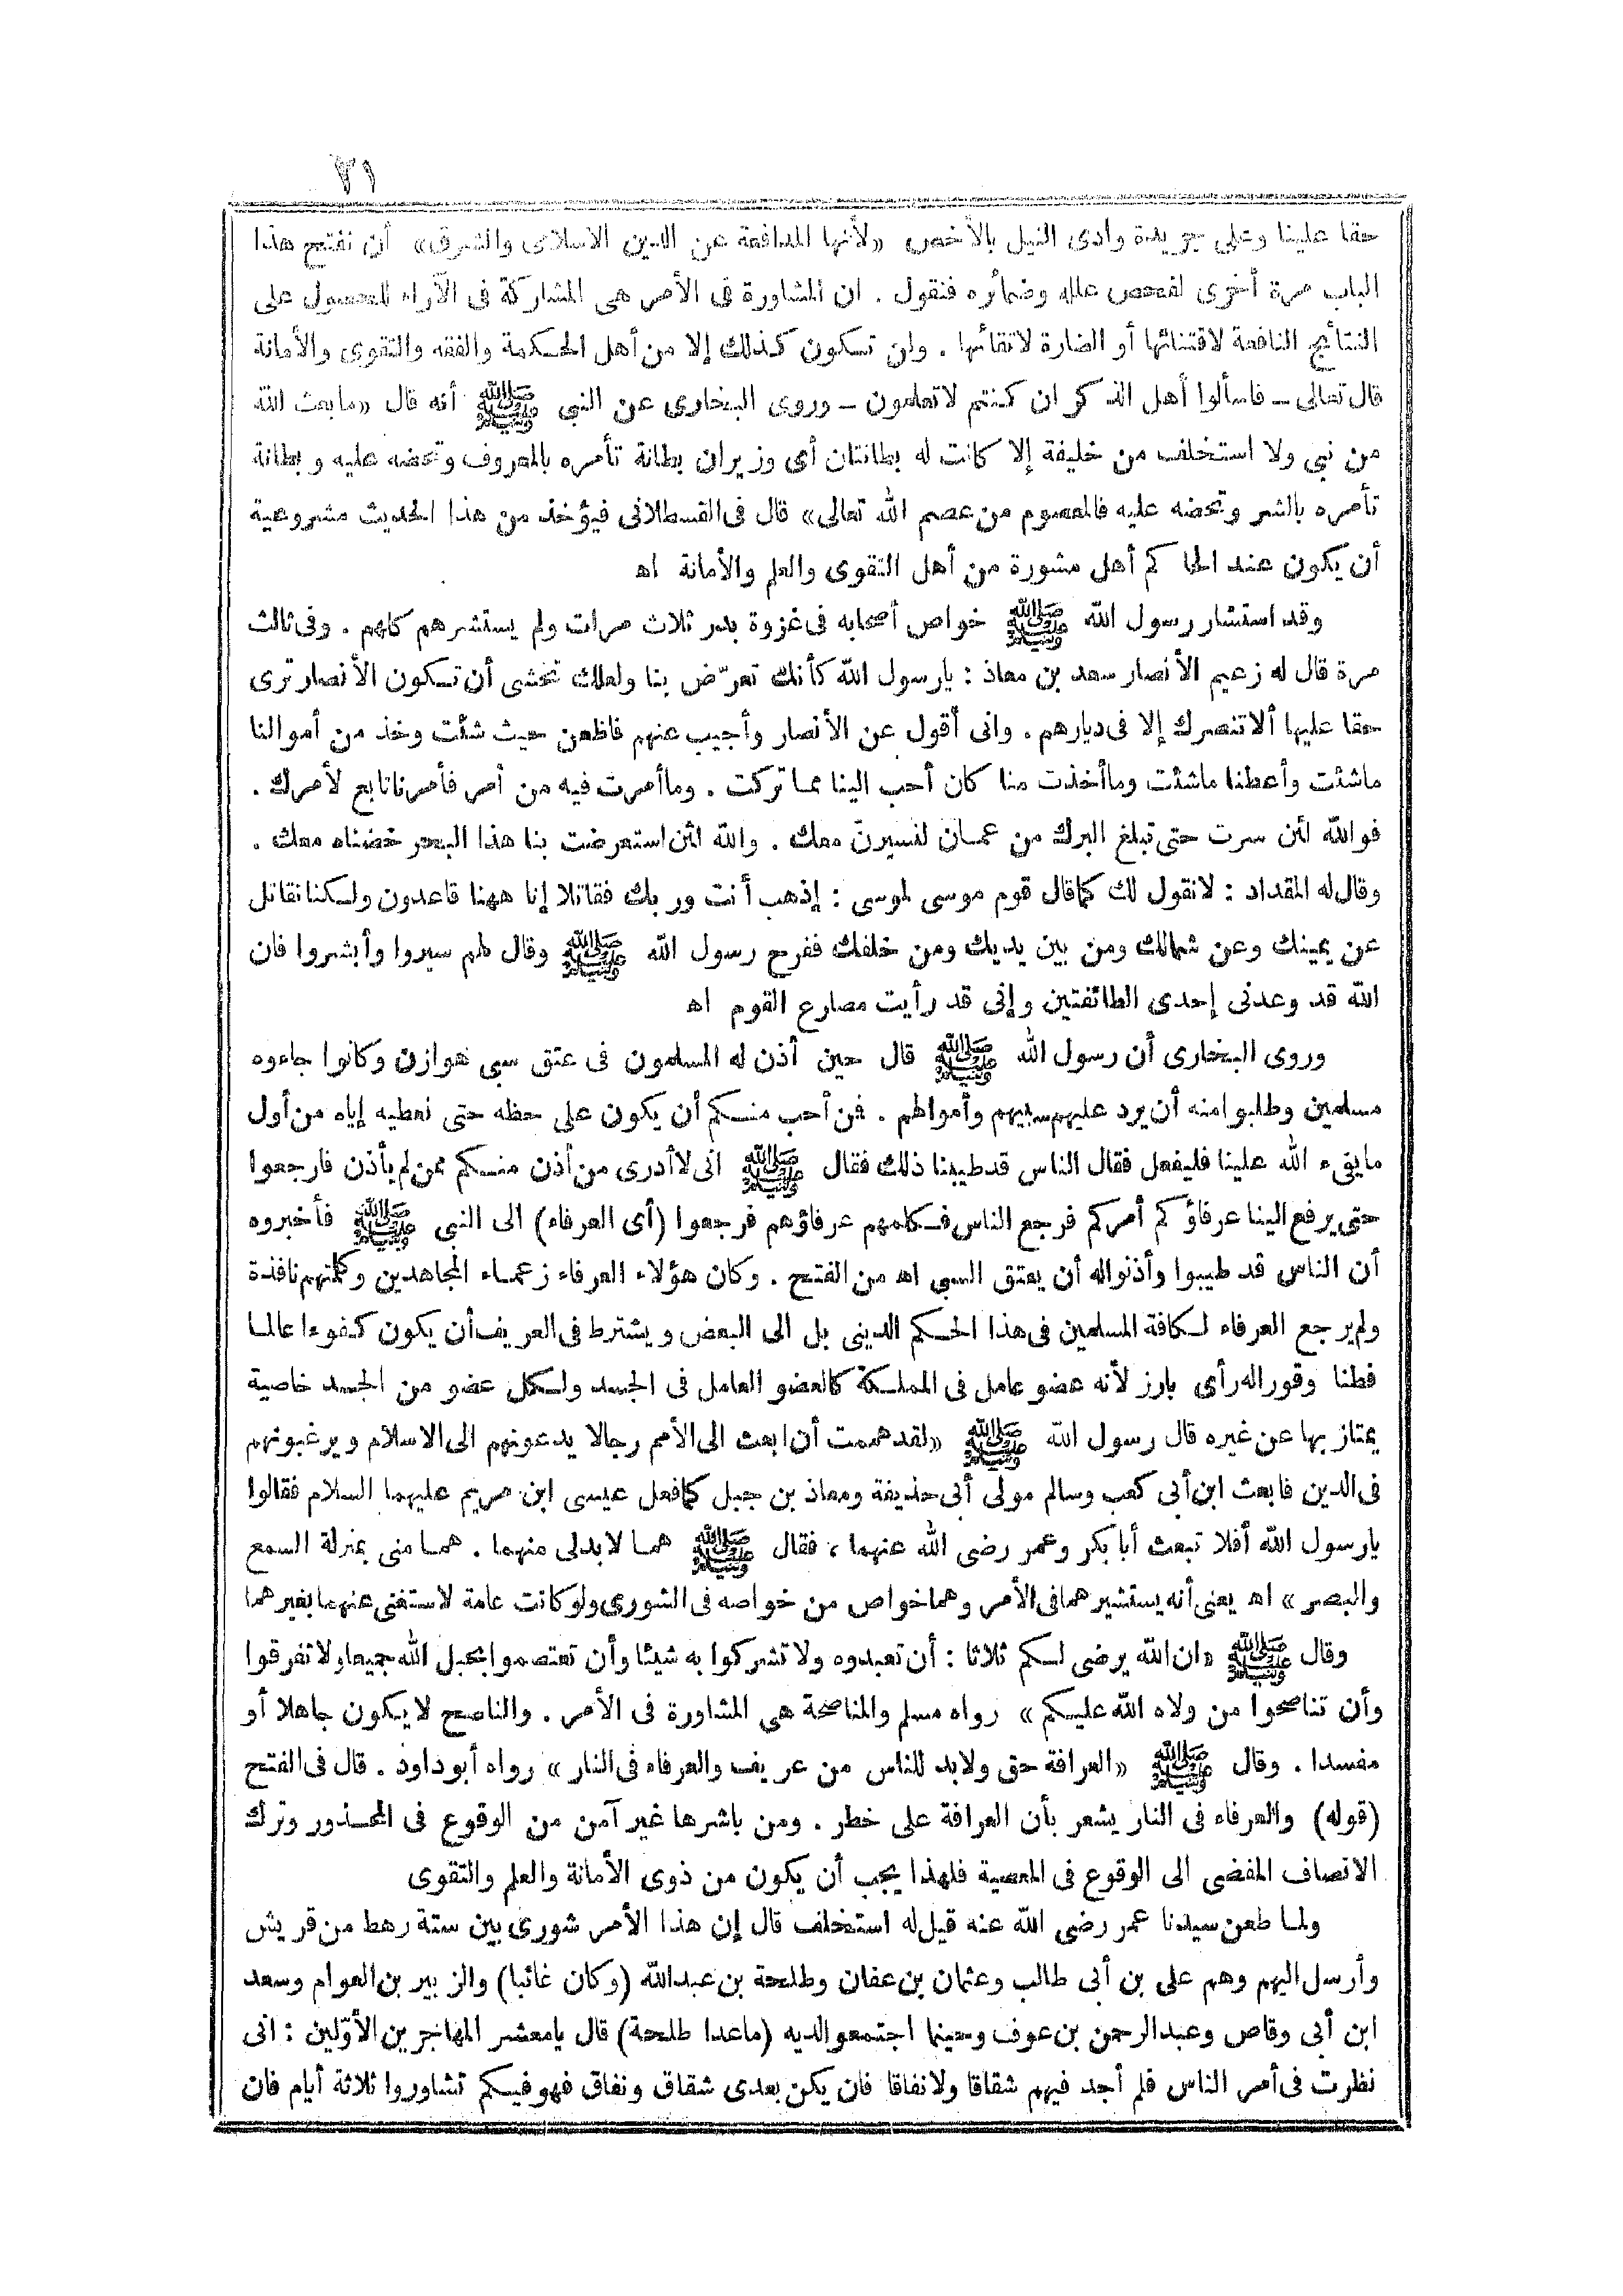 ٢١
حقا علينا وعلى جريدة وادى النيل بالأخص «لأنها المدافعة عن الدين الاسلامى والشرق» أن نفتح هذا
الباب مرة أخرى لفحص علله وضمائره فنقول . ان المشاورة فى الأمر هى المشاركة فى الآراء للحصول على
النتائج النافعة لاقتنائها أو الضارة لاتقائها . ولن تسكون كذلك إلا من أهل الحكمة والفقه والتقوى والأمانة
قال تعالى ــ فاسألوا أهل الذكر ان كنتم لا تعلمون ــ وروى البخارى عن النبى ﷺ أنه قال «ما بعث الله
من نبى ولا استخلف من خليفة إلا كانت له بطانتان أى وزيران بطانة تأمره بالمعروف وتحضه عليه وبطانة
تأمره بالشر وتحضه عليه فالمعصوم من عصم الله تعالى» قال فى القسطلانى فيؤخذ من هذا الحديث مشروعية
أن يكون عند الحاكم أهل مشورة من أهل التقوى والعلم والأمانة اه
وقد استشار رسول الله ﷺ خواص أصحابه فى غزوة بدر ثلاث مرات ولم يستشرهم كلهم . وفى ثالث
مرة قال له زعيم الأنصار سعد بن معاذ : يارسول الله كأنك تعرّض بنا ولعلك تخشى أن تكون الأنصار ترى
حقا عليها ألا تنصرك إلا فى ديارهم . وانى أقول عن الأنصار وأجيب عنهم فاظعن حيث شئت وخذ من أموالنا
ماشئت وأعطنا ماشئت وماأخذت منا كان أحب الينا مما تركت . وماأمرت فيه من أمر فأمرنا تابع لأمرك .
فوالله لئن سرت حتى تبلغ البرك من عمان لنسيرنّ معك . والله لئن استعرضت بنا هذا البحر خضناه معك .
وقال له المقداد : لانقول لك كما قال قوم موسى لموسى : إذهب أنت وربك فقاتلا إنا ههنا قاعدون ولكنا نقاتل
عن يمينك وعن شمالك ومن بين يديك ومن خلفك ففرح رسول الله ﷺ وقال لهم سيروا وأبشروا فان
الله قد وعدنى إحدى الطائفتين وإنى قد رأيت مصارع القوم اه
وروى البخارى أن رسول الله ﷺ قال حين أذن له المسلمون فى عتق سبى هوازن وكانوا جاءوه
مسلمين وطلبوا منه أن يرد عليهم سبيهم وأموالهم . فمن أحب منكم أن يكون على حظه حتى نعطيه إياه من أول
مايفىء الله علينا فليفعل فقال الناس قد طيبنا ذلك فقال ﷺ انى لاأدرى من أذن منكم ممن لم يأذن فارجعوا
حتى يرفع الينا عرفاؤكم أمركم فرجع الناس فكلمهم عرفاؤهم فرجعوا (أى العرفاء) الى النبى ﷺ فأخبروه
أن الناس قد طيبوا وأذنوا له أن يعتق السبى اه من الفتح . وكان هؤلاء العرفاء زعماء المجاهدين وكلمتهم نافذة
ولم يرجع العرفاء لكافة المسلمين فى هذا الحكم الدينى بل الى البعض ويشترط فى العريف أن يكون كفوءا عالما
فطنا وقورا له رأى بارز لأنه عضو عامل فى المملكة كالعضو العامل فى الجسد ولكل عضو من الجسد خاصية
يمتاز بها عن غيره قال رسول الله ﷺ «لقد هممت أن ابعث الى الأمم رجالا يدعونهم الى الاسلام ويرغبونهم
فى الدين فابعث ابن أبى كعب وسالم مولى أبى حذيفة ومعاذ بن جبل كما فعل عيسى ابن مريم عليهما السلام فقالوا
يارسول الله أفلا تبعث أبا بكر وعمر رضى الله عنهما ، فقال ﷺ هما لابد لى منهما . هما منى بمنزلة السمع
والبصر» اه يعنى أنه يستشيرهما فى الأمر وهما خواص من خواصه فى الشورى ولو كانت عامة لاستغنى عنهما بغيرهما
وقال ﷺ «ان الله يرضى لكم ثلاثا : أن تعبدوه ولا تشركوا به شيئا وأن تعتصموا بحبل الله جميعا ولا تفرقوا
وأن تناصحوا من ولاه الله عليكم» رواه مسلم والمناصحة هى المشاورة فى الأمر . والناصح لايكون جاهلا أو
مفسدا . وقال ﷺ «العرافة حق ولابد للناس من عريف والعرفاء فى النار» رواه أبو داود . قال فى الفتح
(قوله) والعرفاء فى النار يشعر بأن العرافة على خطر . ومن باشرها غير آمن من الوقوع فى المحذور وترك
الانصاف المفضى الى الوقوع فى المعصية فلهذا يجب أن يكون من ذوى الأمانة والعلم والتقوى
ولما طعن سيدنا عمر رضى الله عنه قيل له استخلف قال إن هذا الأمر شورى بين ستة رهط من قريش
وأرسل اليهم وهم على بن أبى طالب وعثمان بن عفان وطلحة بن عبدالله (وكان غائبا) والزبير بن العوام وسعد
ابن أبى وقاص وعبدالرحمن بن عوف وحينما اجتمعوا لديه (ماعدا طلحة) قال يامعشر المهاجرين الأوّلين : انى
نظرت فى أمر الناس فلم أجد فيهم شقاقا ولا نفاقا فان يكن بعدى شقاق ونفاق فهو فيكم تشاوروا ثلاثة أيام فان